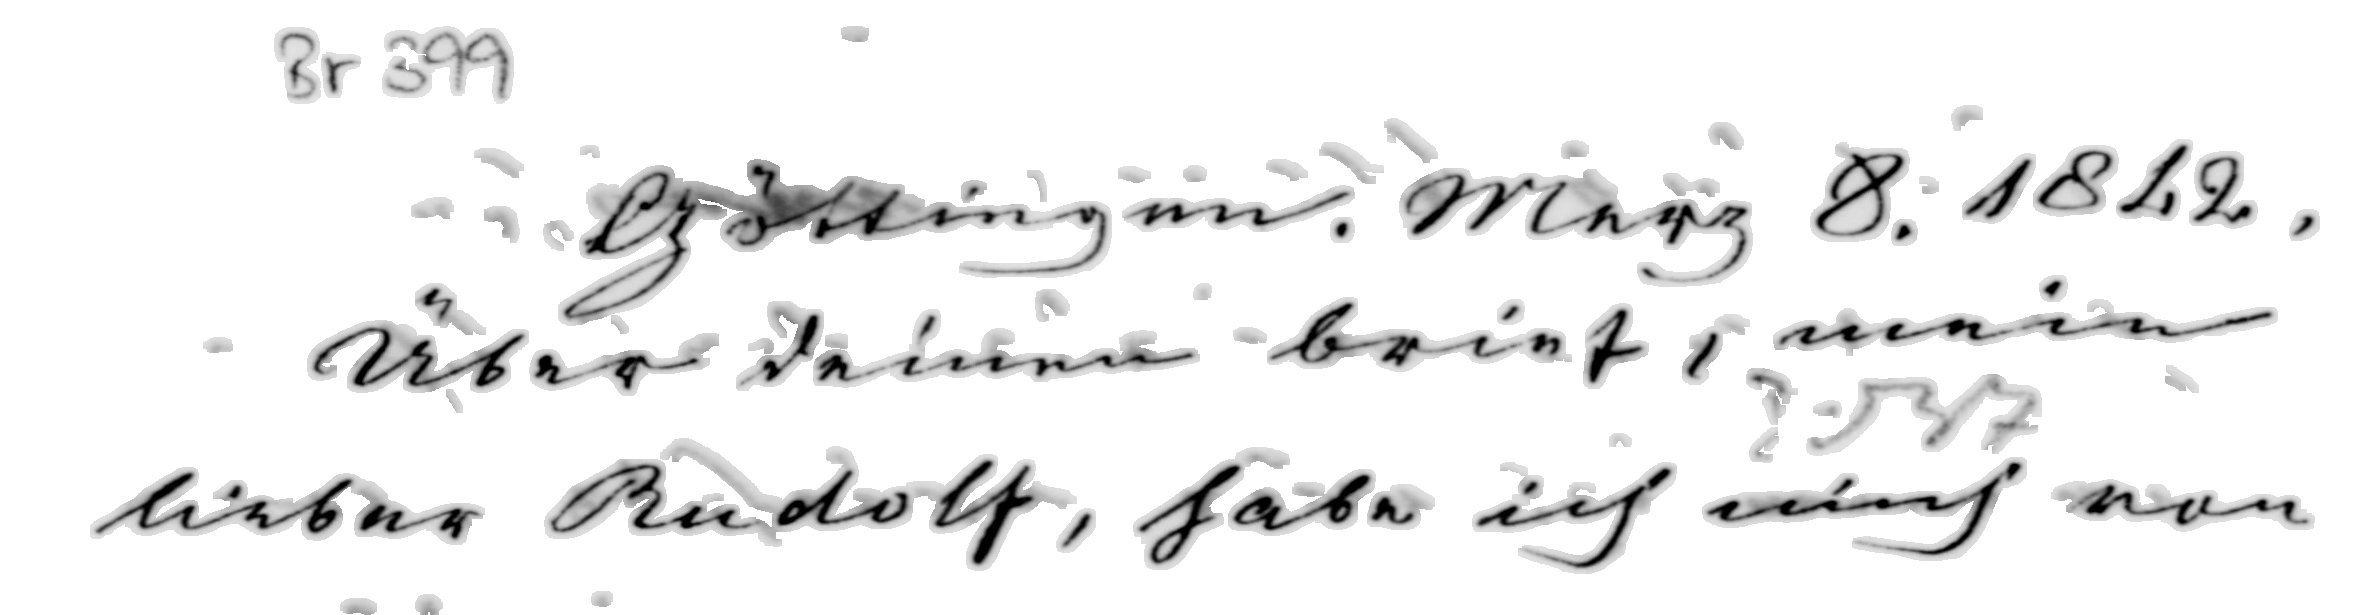 Br 399
Göttingen. Merz 8. 1842.
Über deinen brief, mein
lieber Rudolf, habe ich mich von